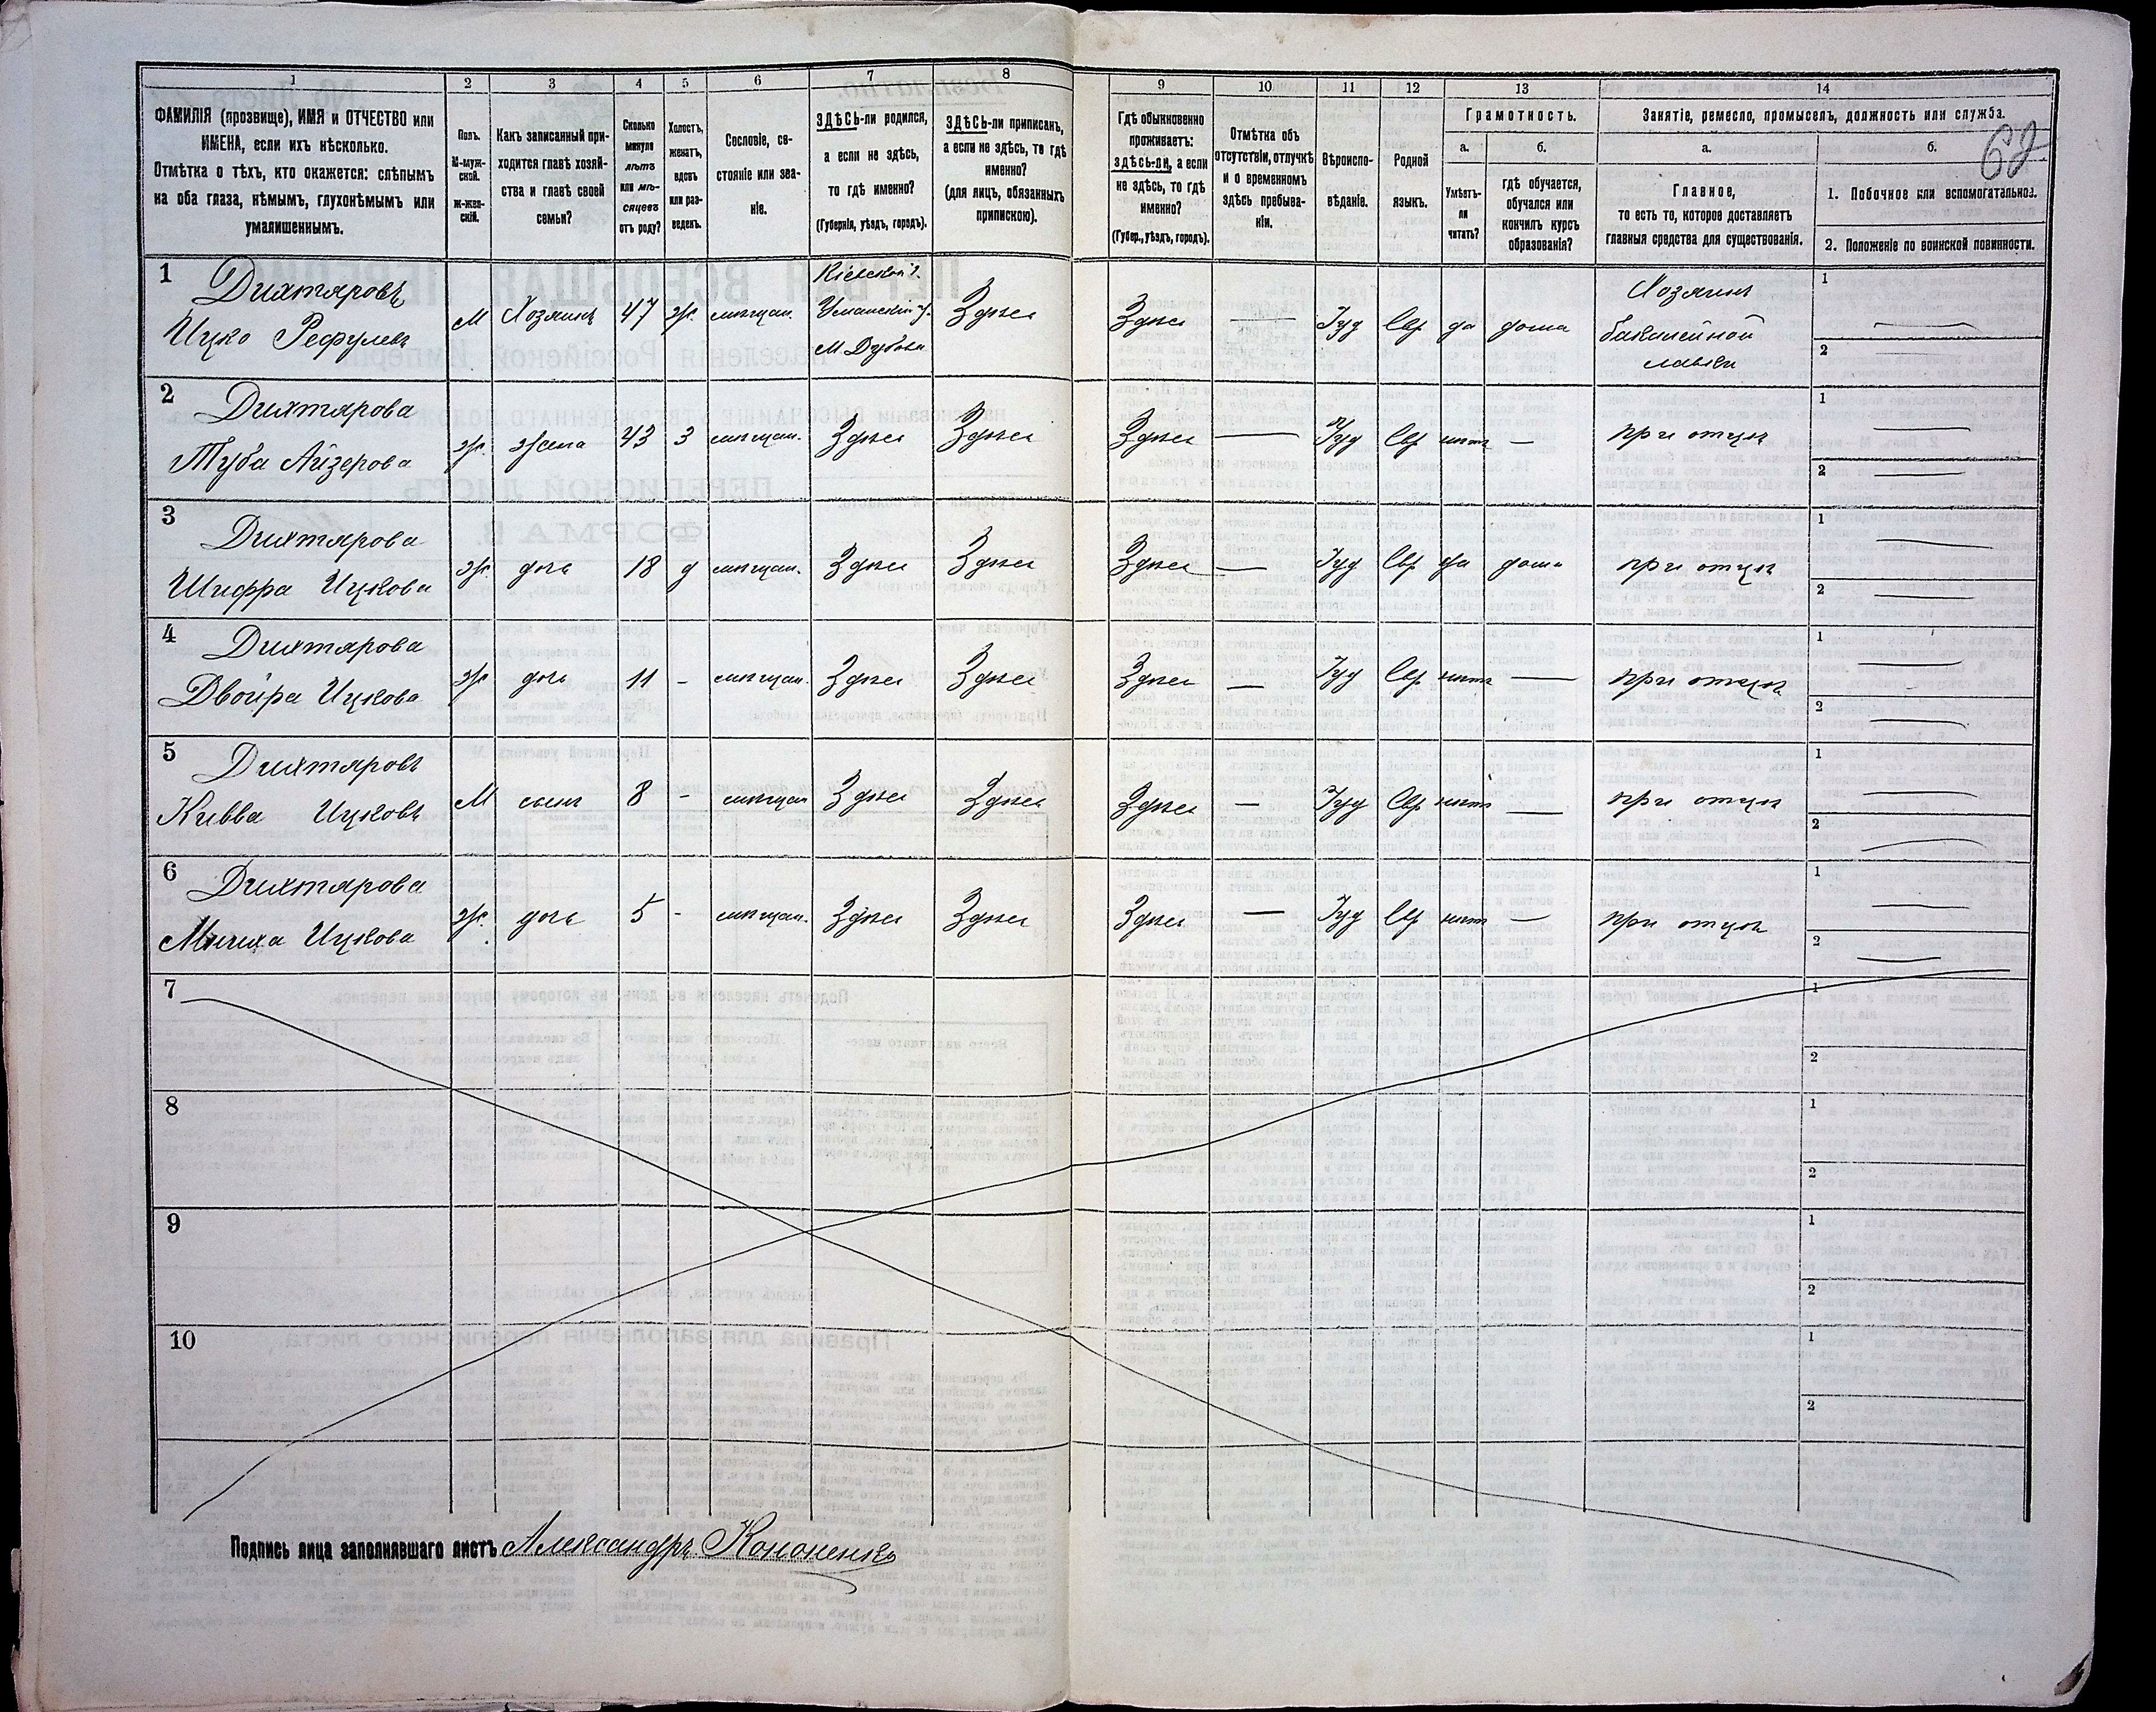 1 2 3 4 5 6 7 8 9 10 11 12 13 14
ФАМИЛІЯ (прозвище), ИМЯ и ОТЧЕСТВО или
ИМЕНА, если ихъ нѣсколько.
Отмѣтка о тѣхъ, кто окажется: слѣпымъ
на оба глаза, нѣмымъ, глухонѣмымъ или
умалишеннымъ.
Полъ.
М-муж-
ской.
ж-жен-
скій.
Какъ записанный при-
ходится главѣ хозяй-
ства и главѣ своей
семьи?
Сколько
минуло
лѣтъ
или мѣ-
сяцевъ
отъ роду?
Холостъ,
женатъ,
вдовъ
или раз-
веденъ.
Сословіе, со-
стояніе или зва-
ніе.
ЗДѢСЬ-ли родился,
а если не здѣсь,
то гдѣ именно?
(Губернія, уѣздъ, городъ).
ЗДѢСЬ-ли приписанъ,
а если не здѣсь, то гдѣ
именно?
(для лицъ, обязанныхъ
припискою).
Гдѣ обыкновенно
проживаетъ:
здѣсь-ли, а если
не здѣсь, то гдѣ
именно?
(Губер., уѣздъ, городъ).
Отмѣтка объ
отсутствіи, отлучкѣ
и о временномъ
здѣсь пребыва-
ніи.
Вѣроиспо-
вѣданіе.
Родной
языкъ.
Грамотность.
а.
Умѣетъ-
ли
читать?
б.
гдѣ обучается,
обучался или
кончилъ курсъ
образованія?
Занятіе, ремесло, промыселъ, должность или служба.
а.
Главное,
то есть то, которое доставляетъ
главныя средства для существованія.
б.
1. Побочное или вспомогательное.
2. Положеніе по воинской повинности.
1 Дихтяровъ
Ицко
М Хозяинъ 47 ж. мѣщан.
Кіевской г.
Уманскій у.
М. Дубова
Здѣсь Здѣсь — Іуд Евр да дома
Хозяинъ
бакалейной
лавки
1 —
2 —
2 Дихтярова
Туба Айзерова
ж. жена 43 З мѣщан. Здѣсь Здѣсь Здѣсь — Іуд Евр нѣтъ — при отцѣ
1 —
2 —
3 Дихтярова
Шифра Ицкова
ж. дочь 18 д мѣщан. Здѣсь Здѣсь Здѣсь — Іуд Евр да дома при отцѣ
1 —
2 —
4 Дихтярова
Двойра Ицкова
ж дочь 11 - мѣщан. Здѣсь Здѣсь Здѣсь — Іуд Евр нѣтъ — при отцѣ
1 —
2 —
5 Дихтяровъ
Кивва Ицковъ
М сынъ 8 - мѣщан Здѣсь Здѣсь Здѣсь — Іуд Евр нѣтъ — при отцѣ
1 —
2 —
6 Дихтярова
Ицкова
ж. дочь 5 - мѣщан. Здѣсь Здѣсь Здѣсь — Іуд Евр нѣтъ — при отцѣ
1 —
2 —
7
1
2
8
1
2
9
1
2
10
1
2
Подпись лица заполнявшаго листъ Александръ Кононенко